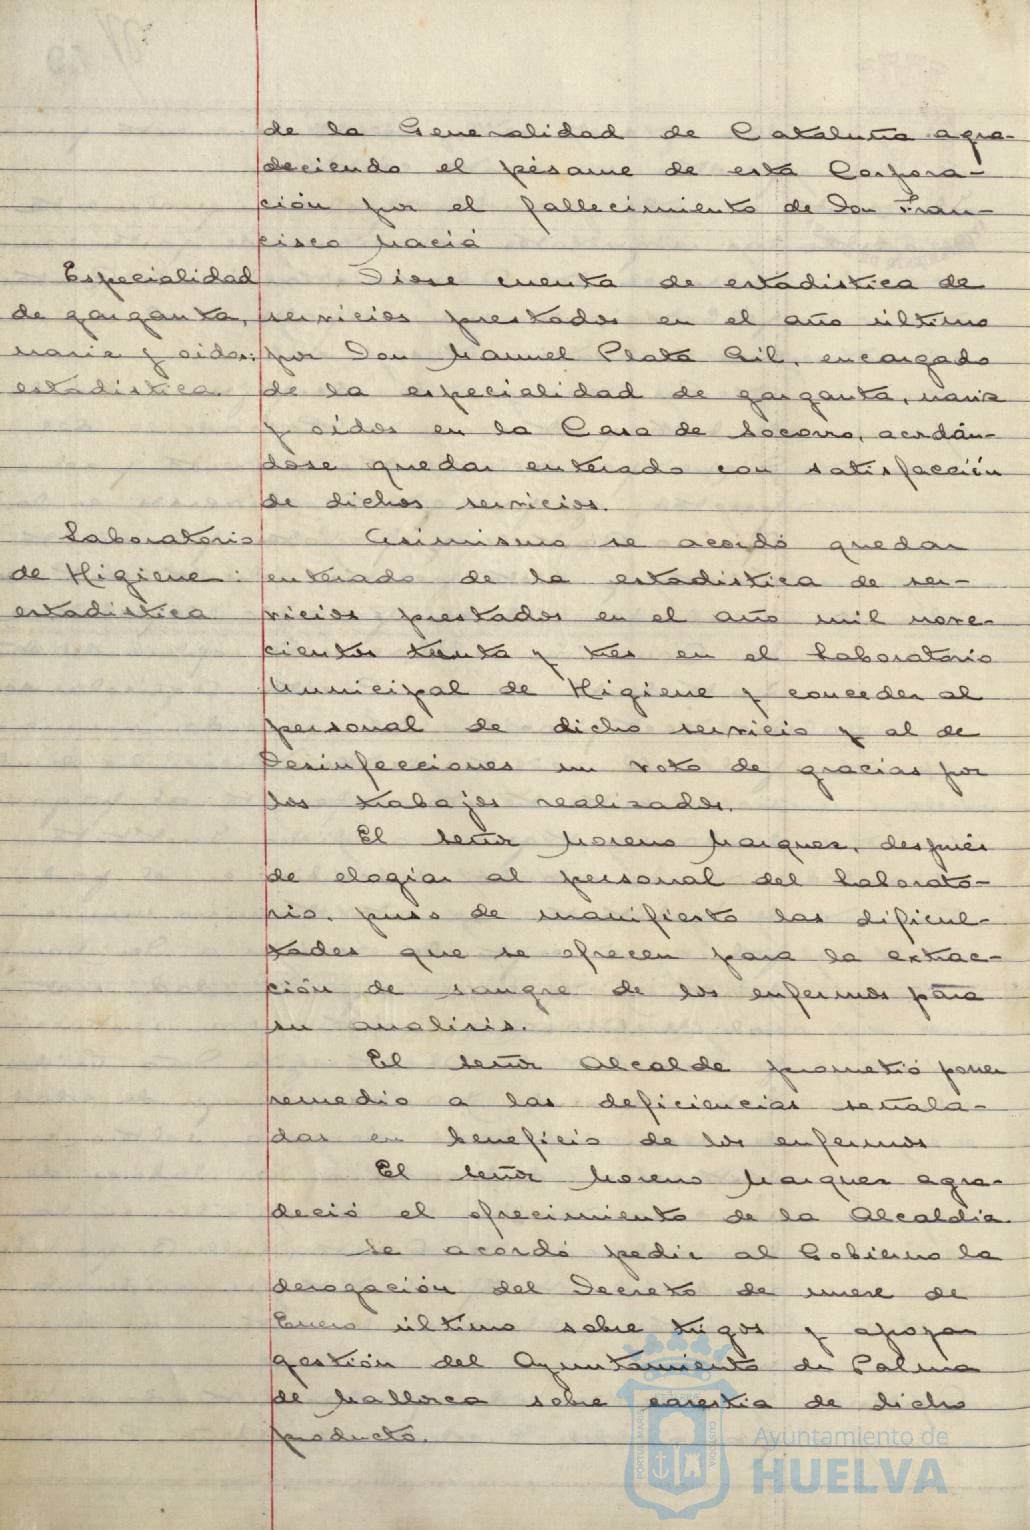 de la Generalidad de Cataluña agra-
deciendo el pésame de esta Corpora-
ción por el fallecimiento de Don Fran-
cisco Maciá
Especialidad
de garganta,
nariz y oidos:
estadistica.
Diose cuenta de estadistica de
servicios prestados en el año último
por Don Manuel Plata Gil, encargado
de la especialidad de garganta, nariz
y oidos en la Casa de Socorro, acordán-
dose quedar enterado con satisfacción
de dichos servicios.
Laboratorio
de Higiene:
estadistica
Asimismo se acordó quedar
enterado de la estadistica de ser-
vicios prestados en el año mil nove-
cientos treinta y tres en el Laboratorio
Municipal de Higiene y conceder al
personal de dicho servicio y al de
Desinfecciones un voto de gracias por
los trabajos realizados.
El señor Moreno Marquez, después
de elogiar al personal del Laborato-
rio, puso de manifiesto las dificul-
tades que se ofrecen para la extrac-
ción de sangre de los enfermos para
su analisis.
El señor Alcalde prometió poner
remedio a las deficiencias señala-
das en beneficio de los enfermos
El señor Moreno Marquez agra-
deció el ofrecimiento de la Alcaldia.
Se acordó pedir al Gobierno la
derogación del Decreto de nueve de
Enero último sobre trigos y apoyar
gestión del Ayuntamiento de Palma
de Mallorca sobre carestia de dicho
producto.
Ayuntamiento de
HUELVA